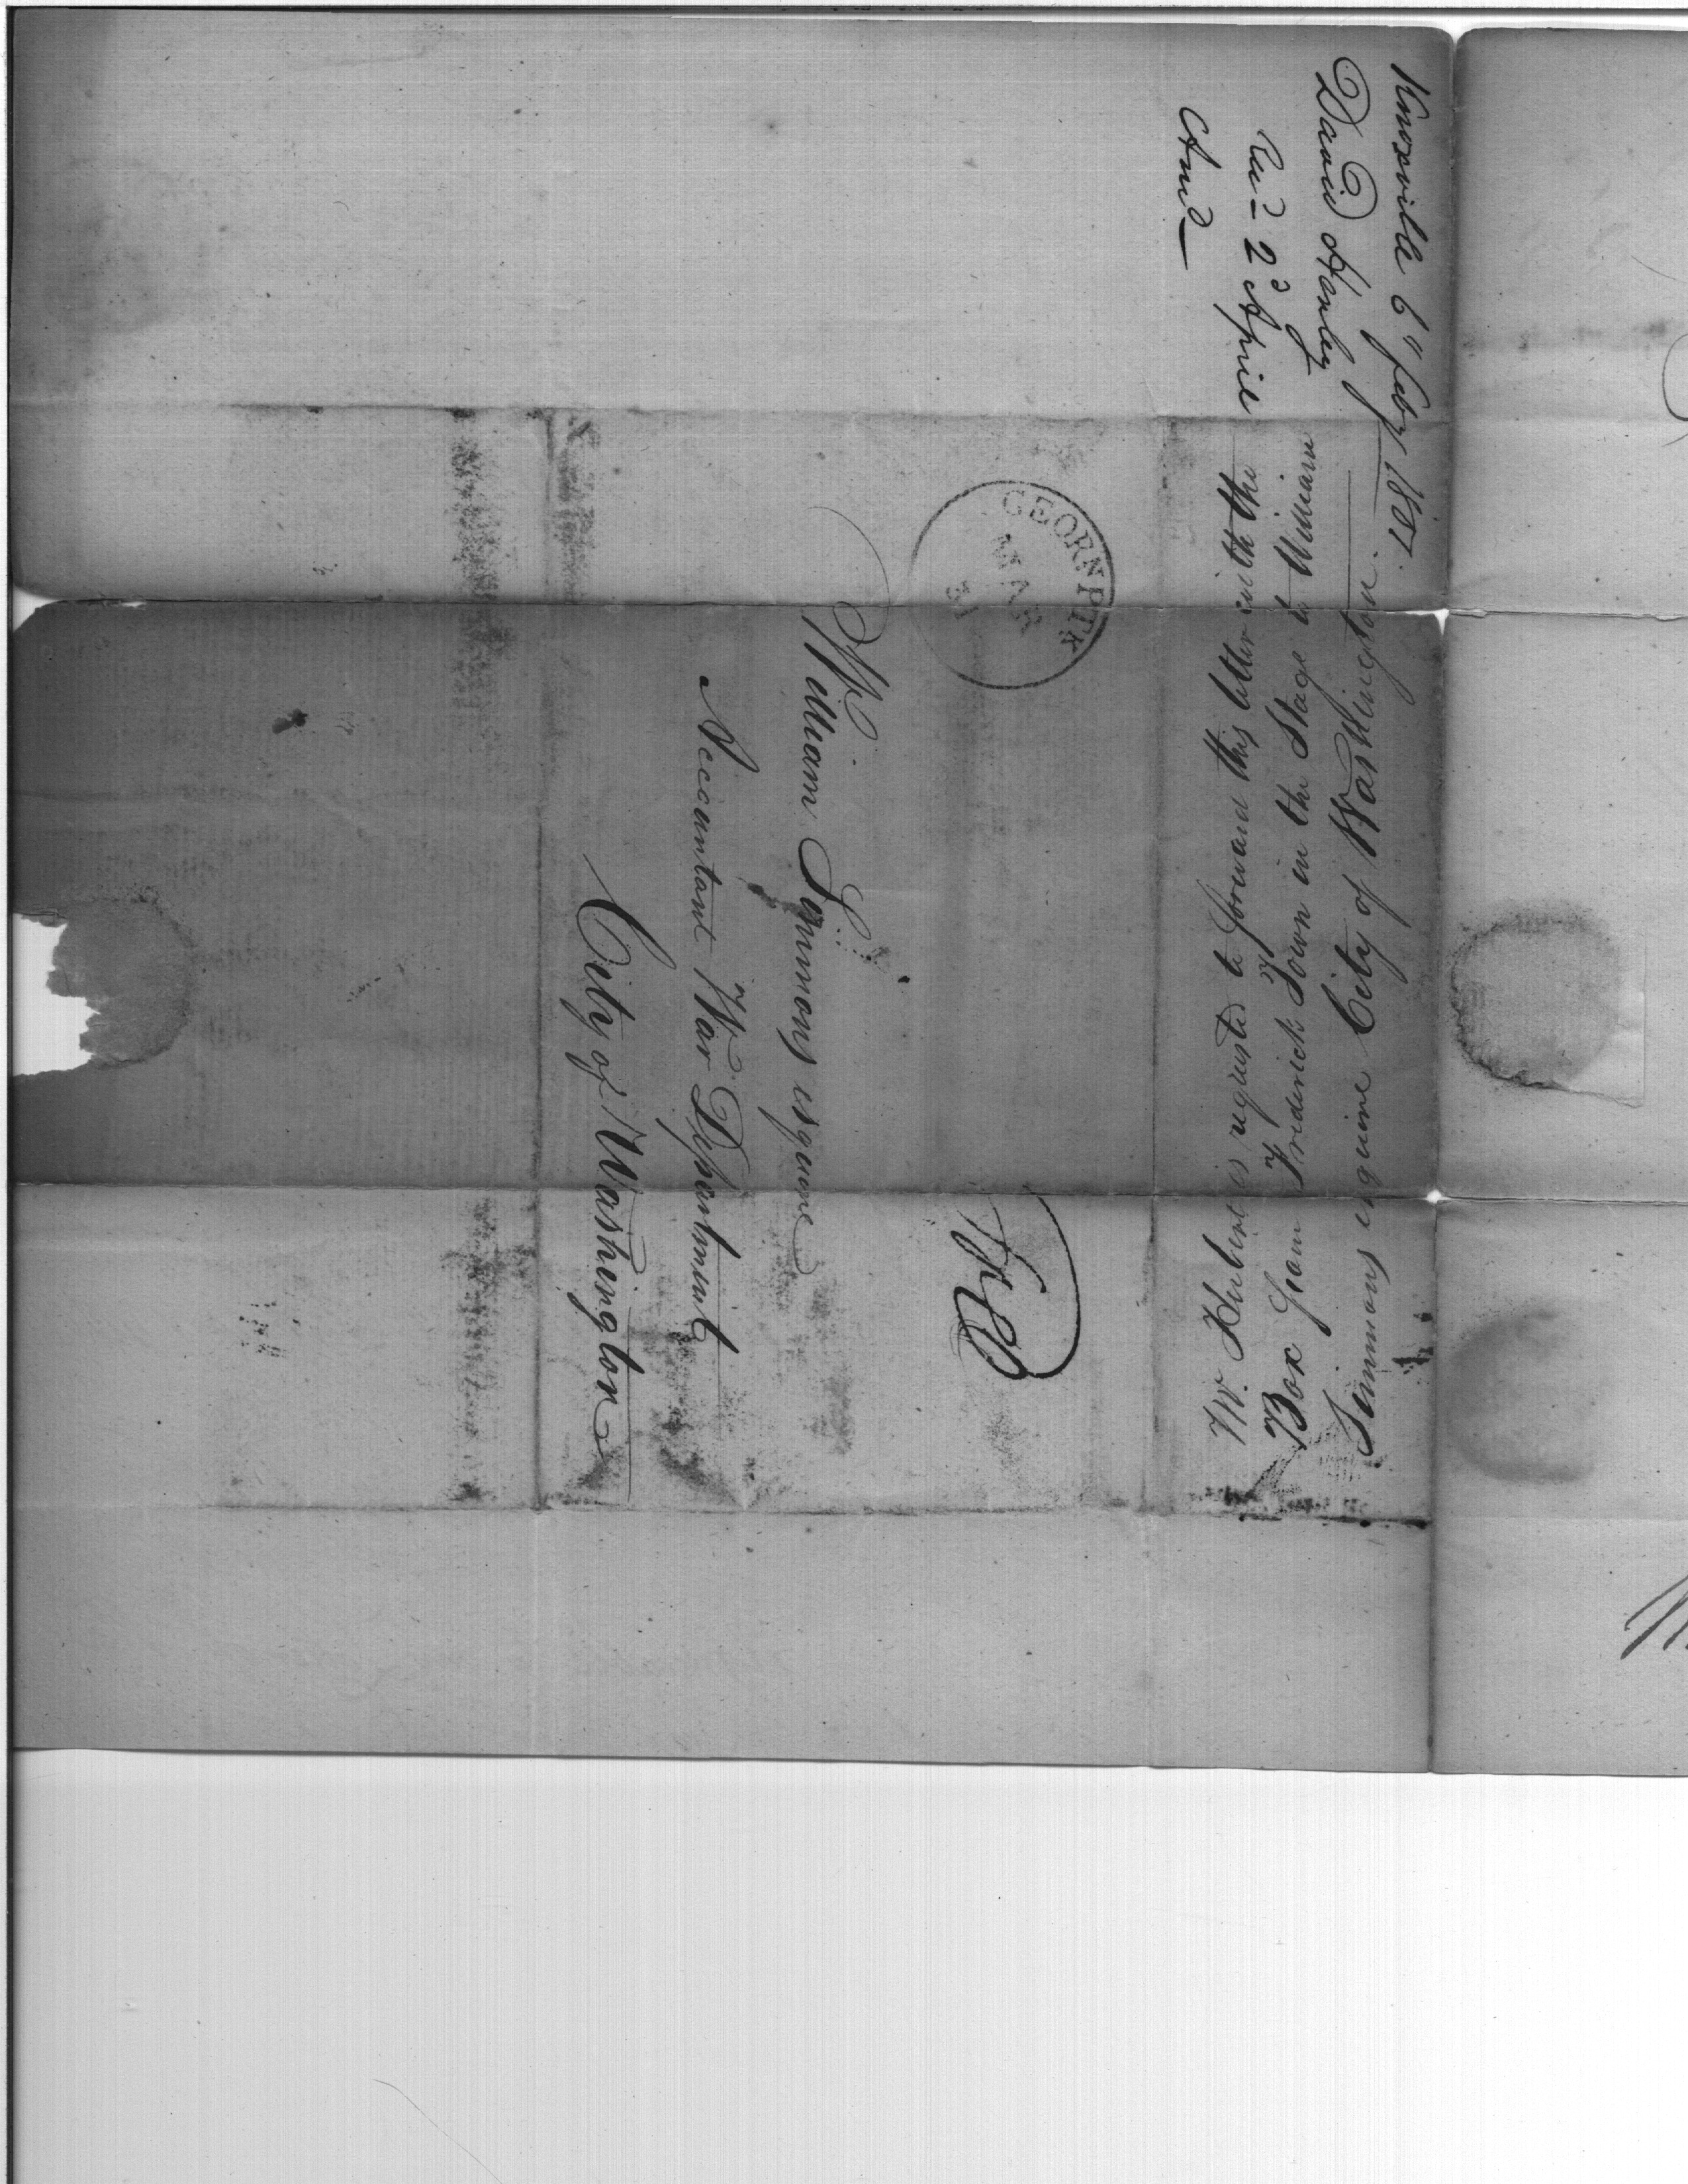 Knoxville 6" feby 1801.
David Henley
Rec.d 2d April
Ansd
GEORN PTK
MAR
31
Free
Wm.
William Simmons esquire
Accountant War Department
City of Washington
Mr. is requested to forward this letter with the
Box from Frederick Town in the Stage to William
Simmons esquire City of Washington.